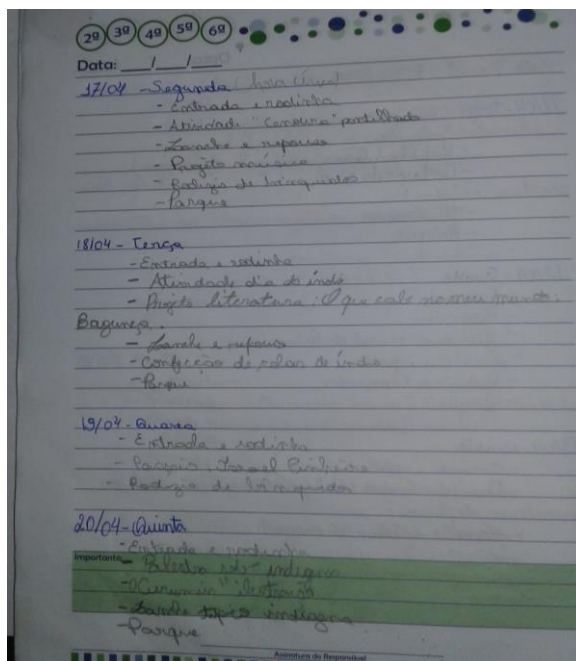 2º 3º 4º 5º 6º
Data: ___/___/___
17/04 - Segunda (hora cívica)
- Entrada e rodinha
- Atividade "Cenoura" pontilhado
- Lanche e repouso
- Projeto
- Rodízio de brinquedos
- Parque
18/04 - Terça
- Entrada e rodinha
- Atividade dia do índio
- Projeto literatura: O que cabe no meu mundo:
Bagunça.
- Lanche e repouso
- Confecção de colar de índio
- Parque
19/04 - Quarta
- Entrada e rodinha
- Passeio: Israel Pinheiro
- Rodízio de brinquedos
20/04 - Quinta
- Entrada e rodinha
Importante - Palestra sobre indígena
- "Curumim"
- Lanche típico
- Parque
Assinatura do Responsável